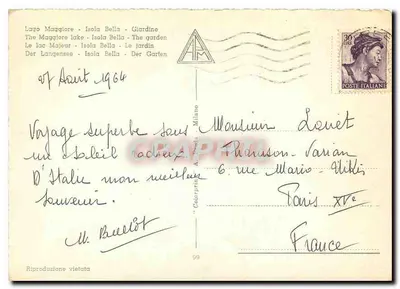 Lago Maggiore - Isola Bella - Giardino
The Maggiore lake - Isola Bella - The garden
Le Lac Majeur - Isola Bella - Le jardin
Der Langensee - Isola Bella - Der Garten
27 Août 1964
Voyage superbe sous
un soleil radieux
D'Italie mon meilleur
souvenir.
Riproduzione vietata
Milano
99
30
POSTE ITALIANE
Monsieur
Thomson-Varian
6 rue Mario-Nikis
Paris XVe
France